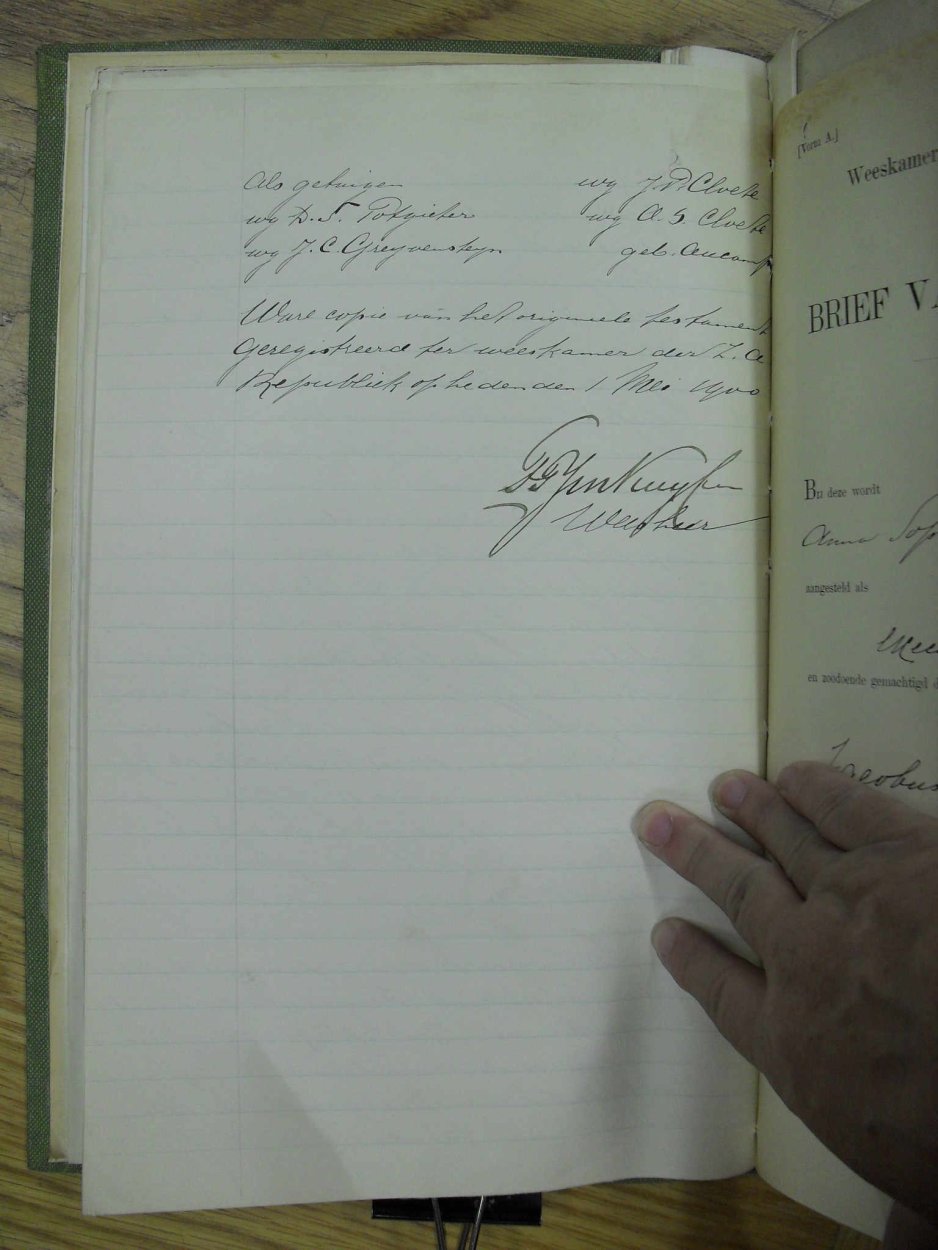 Als getuigen wg J. P. Cloete
wg D. S. Potgieter wg A. S Cloete
wg J. C. Greyvensteyn geb. Aucamp
Ware copie van het origineele testament
Geregistreerd ter weeskamer der Z. A
Republiek op heden den 1 Mei 1900
Weesheer
[Vorm A.]
Weeskamer
BRIEF VA
Bij deze wordt
Anna Sop
aangesteld als
en zoodoende gemachtigd d
Jacobus